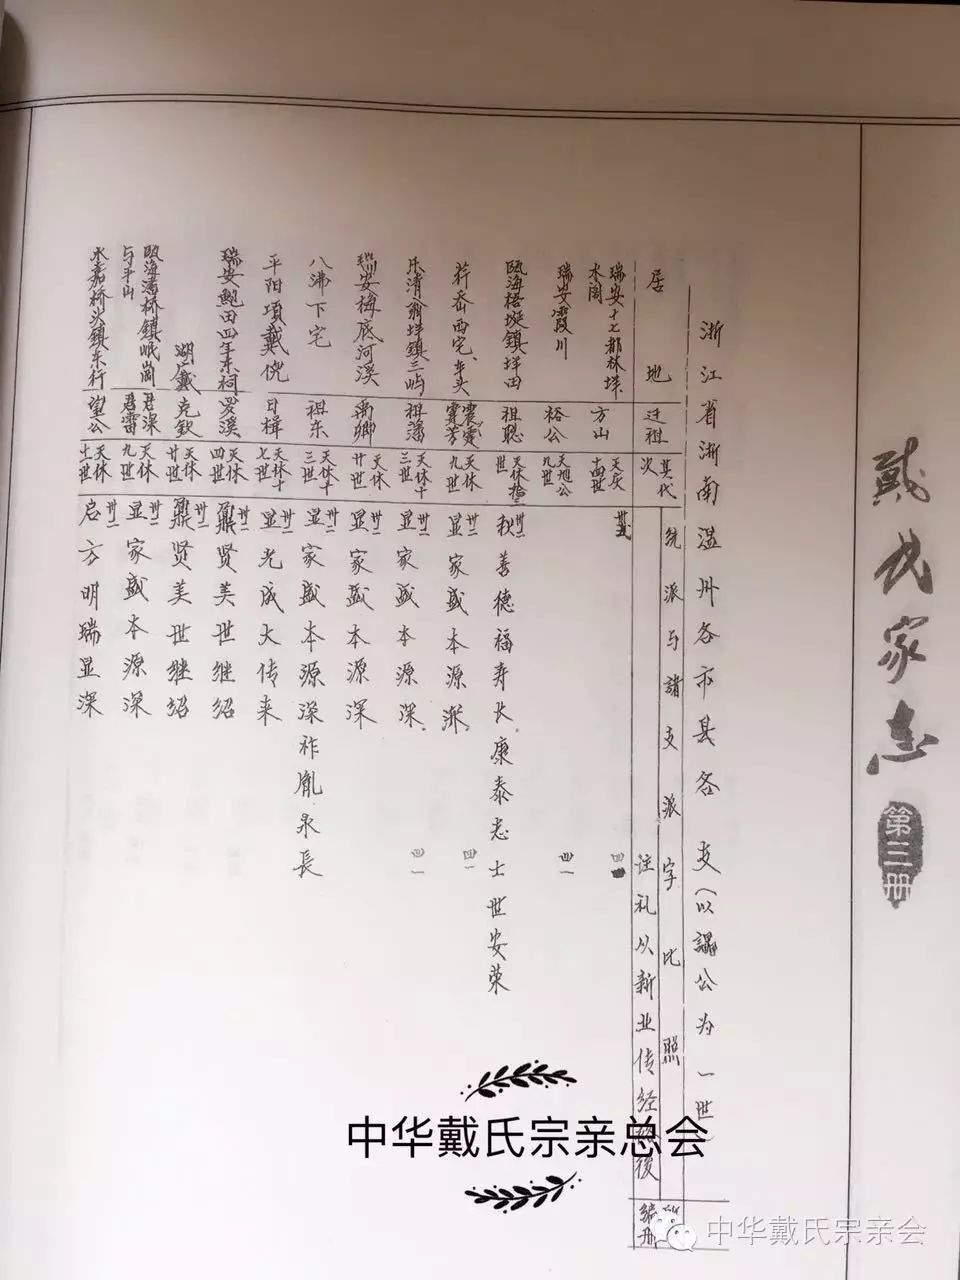 戴氏家志
第三册
浙江省浙南温州各市县各支(以諹公为一世)
居地
迁祖
其代次
统派与諸支派字比照
注礼从新业传经 後
编册
瑞安十七都林垟
水阁
方山
天庆十四世
四
瑞安霞川
裕公
天旭公九世
四一
瓯海梧埏鎮垟田
祖聪
世
卅二
秋善德福寿长康泰志士世安荣
荇岙西宅、车头
震雯
霁芳
天休九世
卅二
显家盛本源深
四一
乐清翁垟鎮三屿
祖藩
天休十三世
卅二
显家盛本源深
四一
瑞安梅底河溪
禹卿
天休廿世
卅二
显家盛本源深
八沸下宅
祖东
天休十三世
卅二
显家盛本源深祚胤永長
平阳項戴倪
日楫
天休十七世
卅二
显光成大传来
瑞安鲍田四年东祠
罗溪
天休四世
卅二
鼎贤美世继绍
湖戴
克欽
天休廿世
卅二
鼎贤美世继绍
瓯海潘桥鎮岷崗
与半山
君深
君雷
天休九世
卅二
显家盛本源深
永嘉桥头鎮东行
望公
天休十一世
卅二
启方明瑞显深
中华戴氏宗亲总会
中华戴氏宗亲会